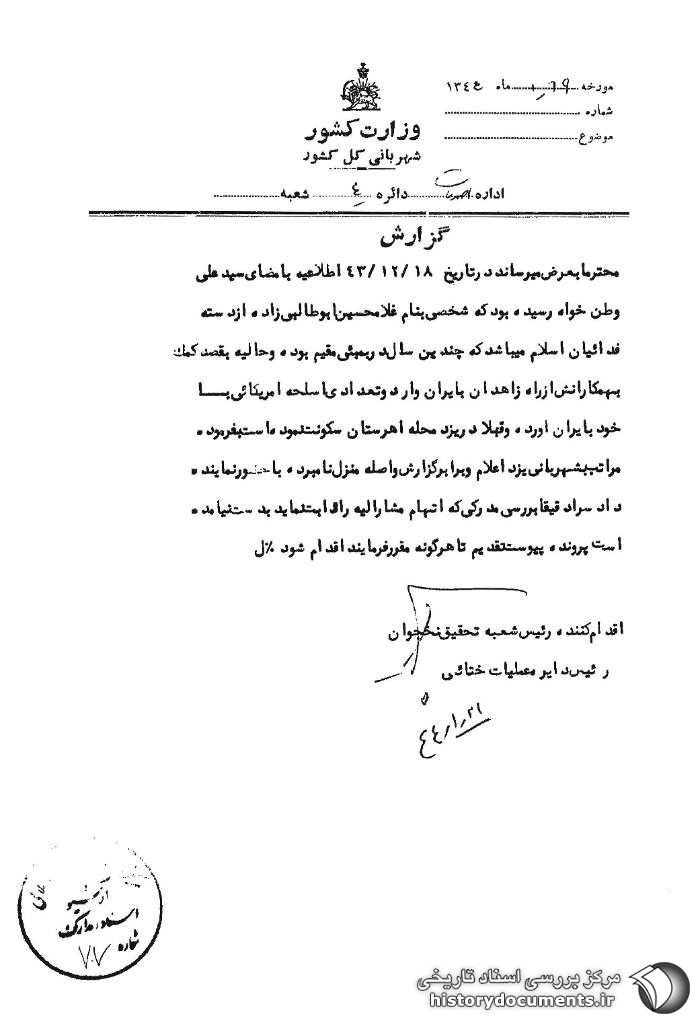 مورخه ۱۹ ماه ۱ ۱۳۴۴
شماره
موضوع
وزارت کشور
شهربانی کل کشور
اداره دائره ٤ شعبه
گزارش
محترما بعرض میرساند در تاریخ ۱۸ /۱۲ /۴۳ اطلاعیه بامضای سید علی
وطن خواه رسیده بود که شخصی بنام غلامحسین ابوطالبی زاده از دسته
فدائیان اسلام میباشد که چندین سال در بمبئی مقیم بوده و حالیه بقصد کمک
بهمکارانش از راه زاهدان بایران وارد و تعدادی اسلحه امریکائی بــا
خود بایران اورده و قبلا در یزد محله اهرستان سکونت نموده است بفرموده
مراتب بشهربانی یزد اعلام و برابر گزارش واصله منزل نامبرده با حضور نماینده
دادسرا دقیقا بررسی مدرکی که اتهام مشارالیه را ثابت نماید بدست نیامده
است پرونده پیوست تقدیم تا هر گونه مقرر فرمایند اقدام شود %ل
اقدام کننده رئیس شعبه تحقیق نخجوان
رئیس دایره عملیات ختائی
۴۴/۱/۲۱
آرشیو
اسناد و مدارک
شماره ۷۰۷
مرکز بررسی اسناد تاریخی
historydocuments.ir